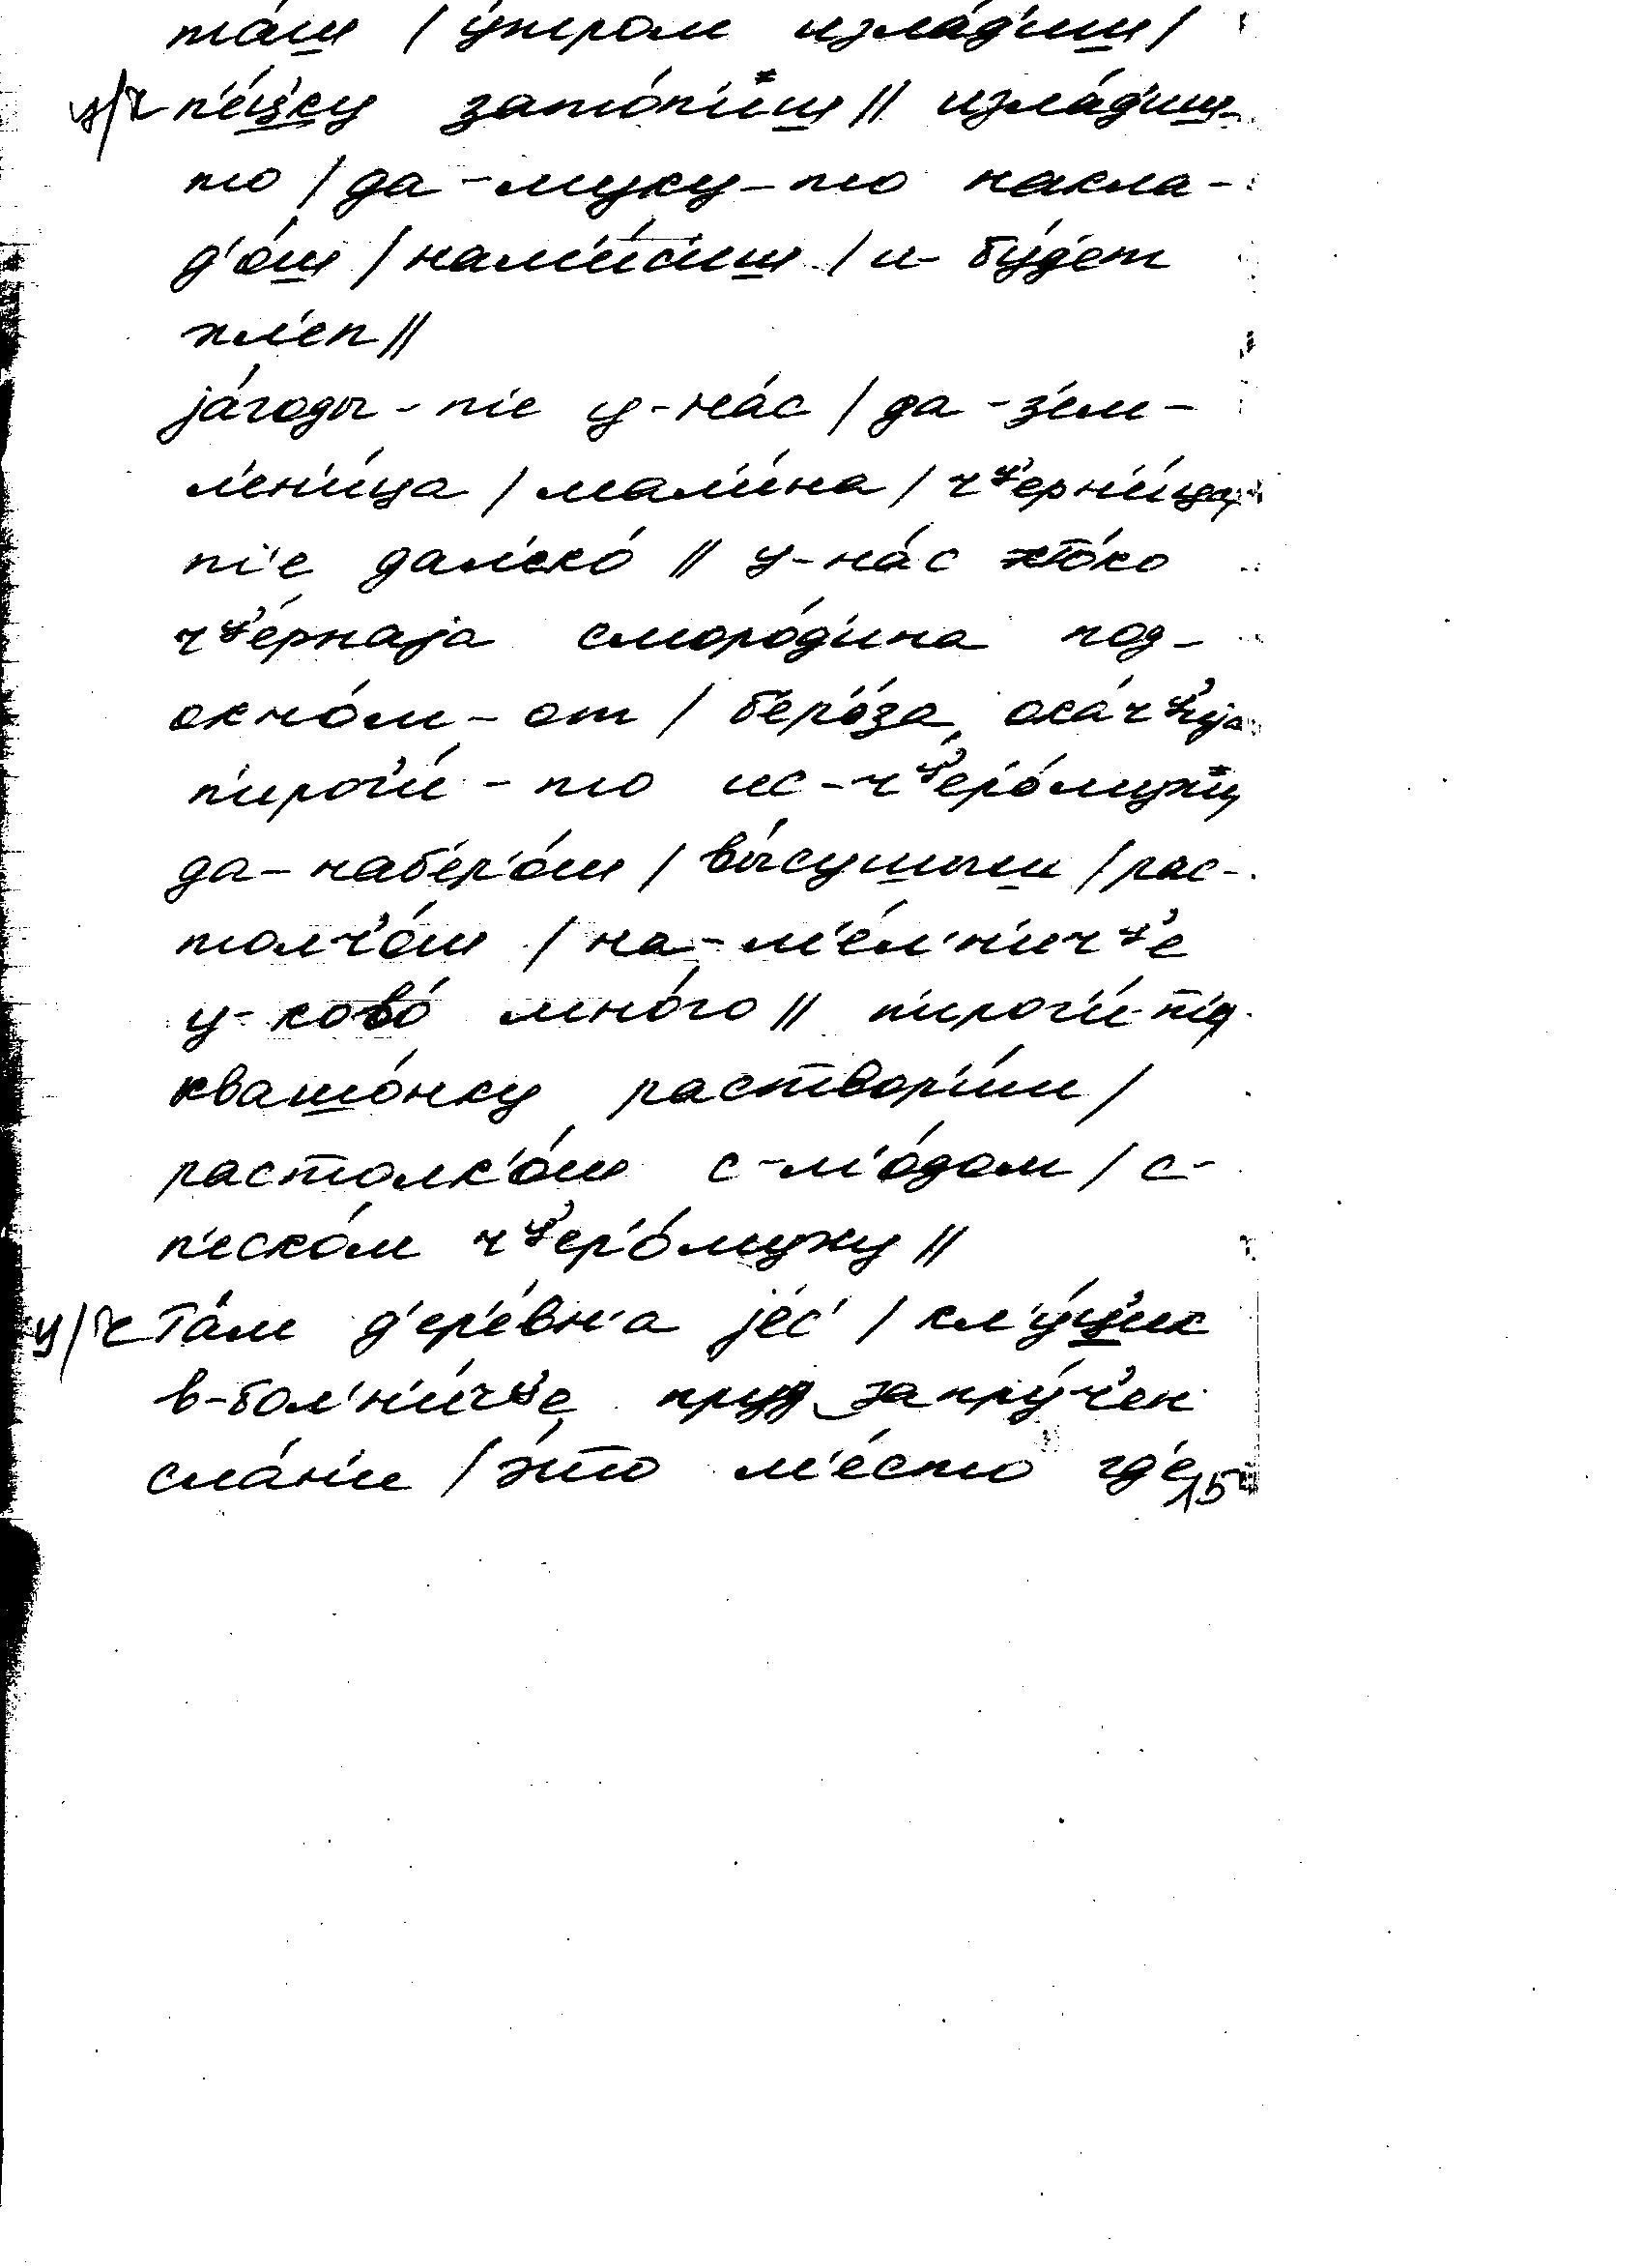 та́ш / у́тром изла́д'иш /
ц/ч п'е́ц'ку зато́п'иш // изла́д'иш-
то / да-муку-то накла-
д'о́ш / нам'и́с'иш / и-бу́д'ет
хл'еп //
jа́годы-т'е у-на́с / да-з'ем-
л'ен'и́ца / мал'и́на / чᶣ'ерн'и́ца
т'е дал'еко́ // у-на́с то́ко
чᶣ'е́рнаjа сморо́д'ина под-
окно́м-от / б'ер'о́за,
п'ирог'и́-то ис-чᶣ'ер'о́мухи
да-наб'ер'о́ш / вы́сушыш / рас-
толч'о́ш / на-м'е́л'н'ичᶣ'е
у-ково́ мно́го // п'ирог'и́-т'а
квашо́нку растворим /
растолк'о́ш с-м'о́дом / с-
п'еско́м чᶣ'ер'о́муху //
ц/ч та́м д'ер'е́вн'а jе́с' / кл'у́ц'ик
в-бол'н'и́чᶣ'е пруд запру́ч'ен
сла́н'и / э́то м'е́сто гд'е
15